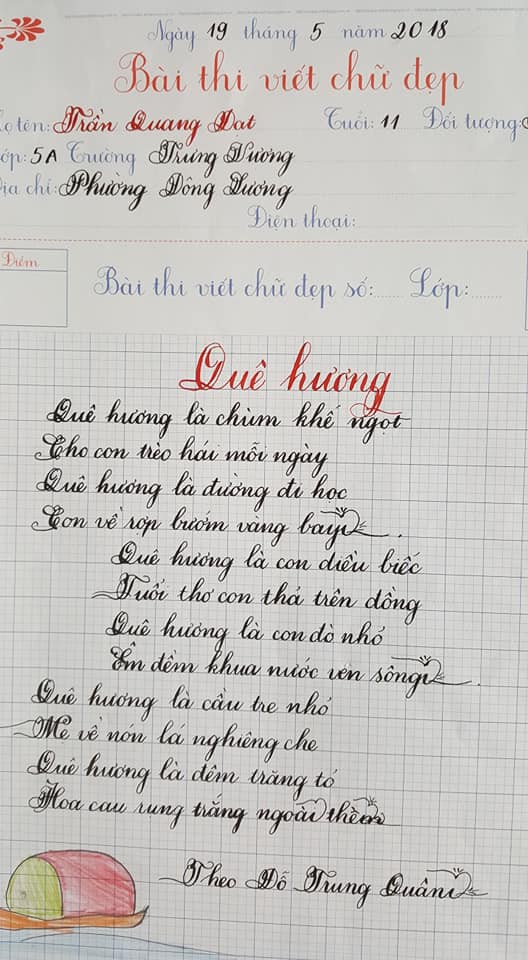 Ngày 19 tháng 5 năm 2018
Bài thi viết chữ đẹp
ọ tên: Trần Quang Đạt Tuổi: 11 Đối tượng:
ớp: 5A Trường Trưng Vương
ịa chỉ: Phường Đông Lương
Điện thoại:
Điểm
Bài thi viết chữ đẹp số:...... Lớp:.......
Quê hương
Quê hương là chùm khế ngọt
Cho con trèo hái mỗi ngày
Quê hương là đường đi học
Con về rợp bướm vàng bay.
Quê hương là con diều biếc
Tuổi thơ con thả trên đồng
Quê hương là con đò nhỏ
Êm đềm khua nước ven sông.
Quê hương là cầu tre nhỏ
Mẹ về nón lá nghiêng che
Quê hương là đêm trăng tỏ
Hoa cau rụng trắng ngoài thềm
Theo Đỗ Trung Quân